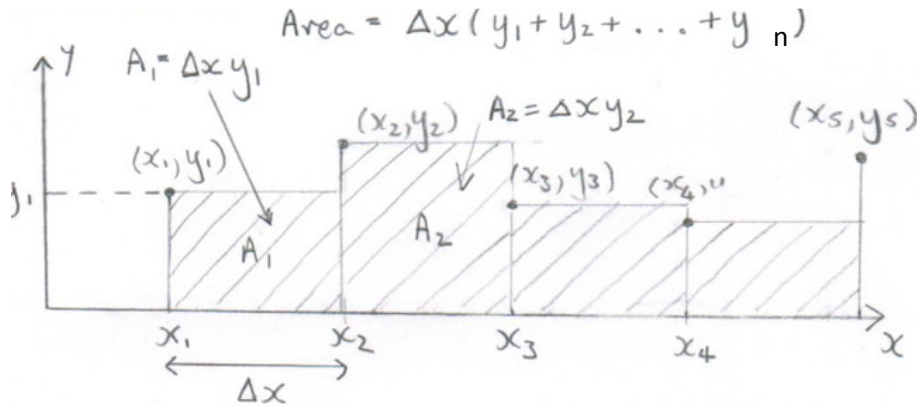 Area = Δx(y₁+y₂+...+y n)
y
A₁=Δxy₁
A₂=Δxy₂
(x₁,y₁)
(x₂,y₂)
(x₃,y₃)
(x₄,
(x₅,y₅)
y₁
A₁
A₂
x₁ x₂ x₃ x₄ x
Δx